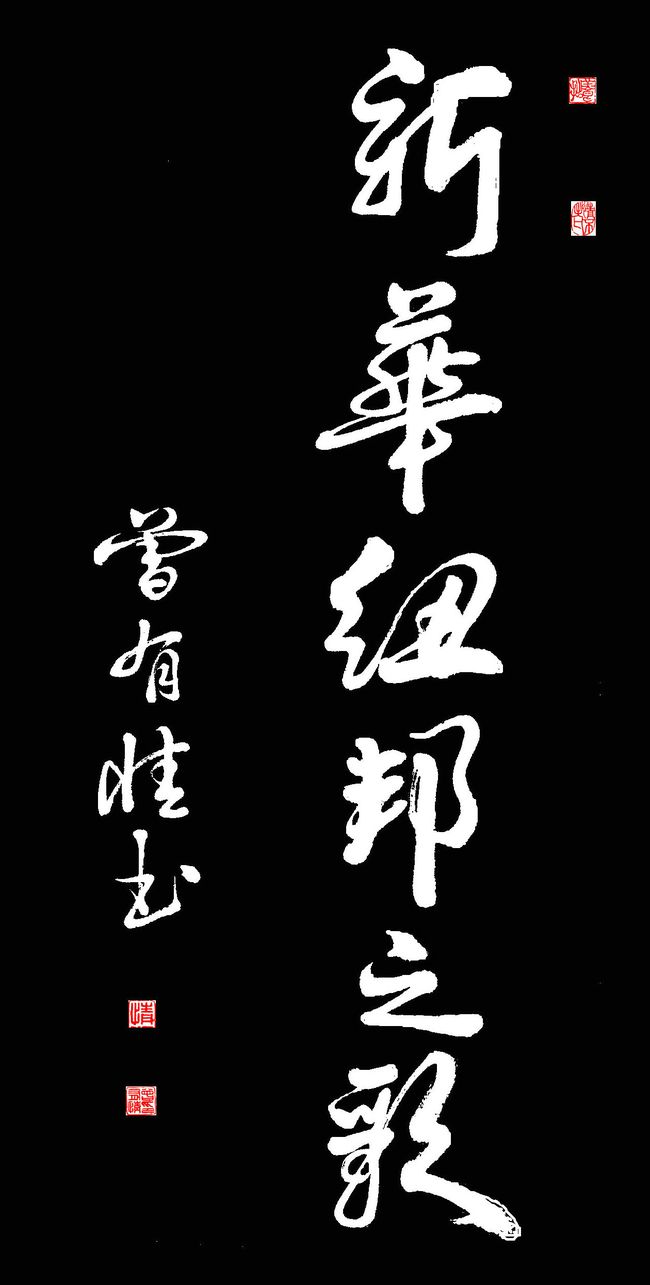 新華紐邦之歌
曾有情书